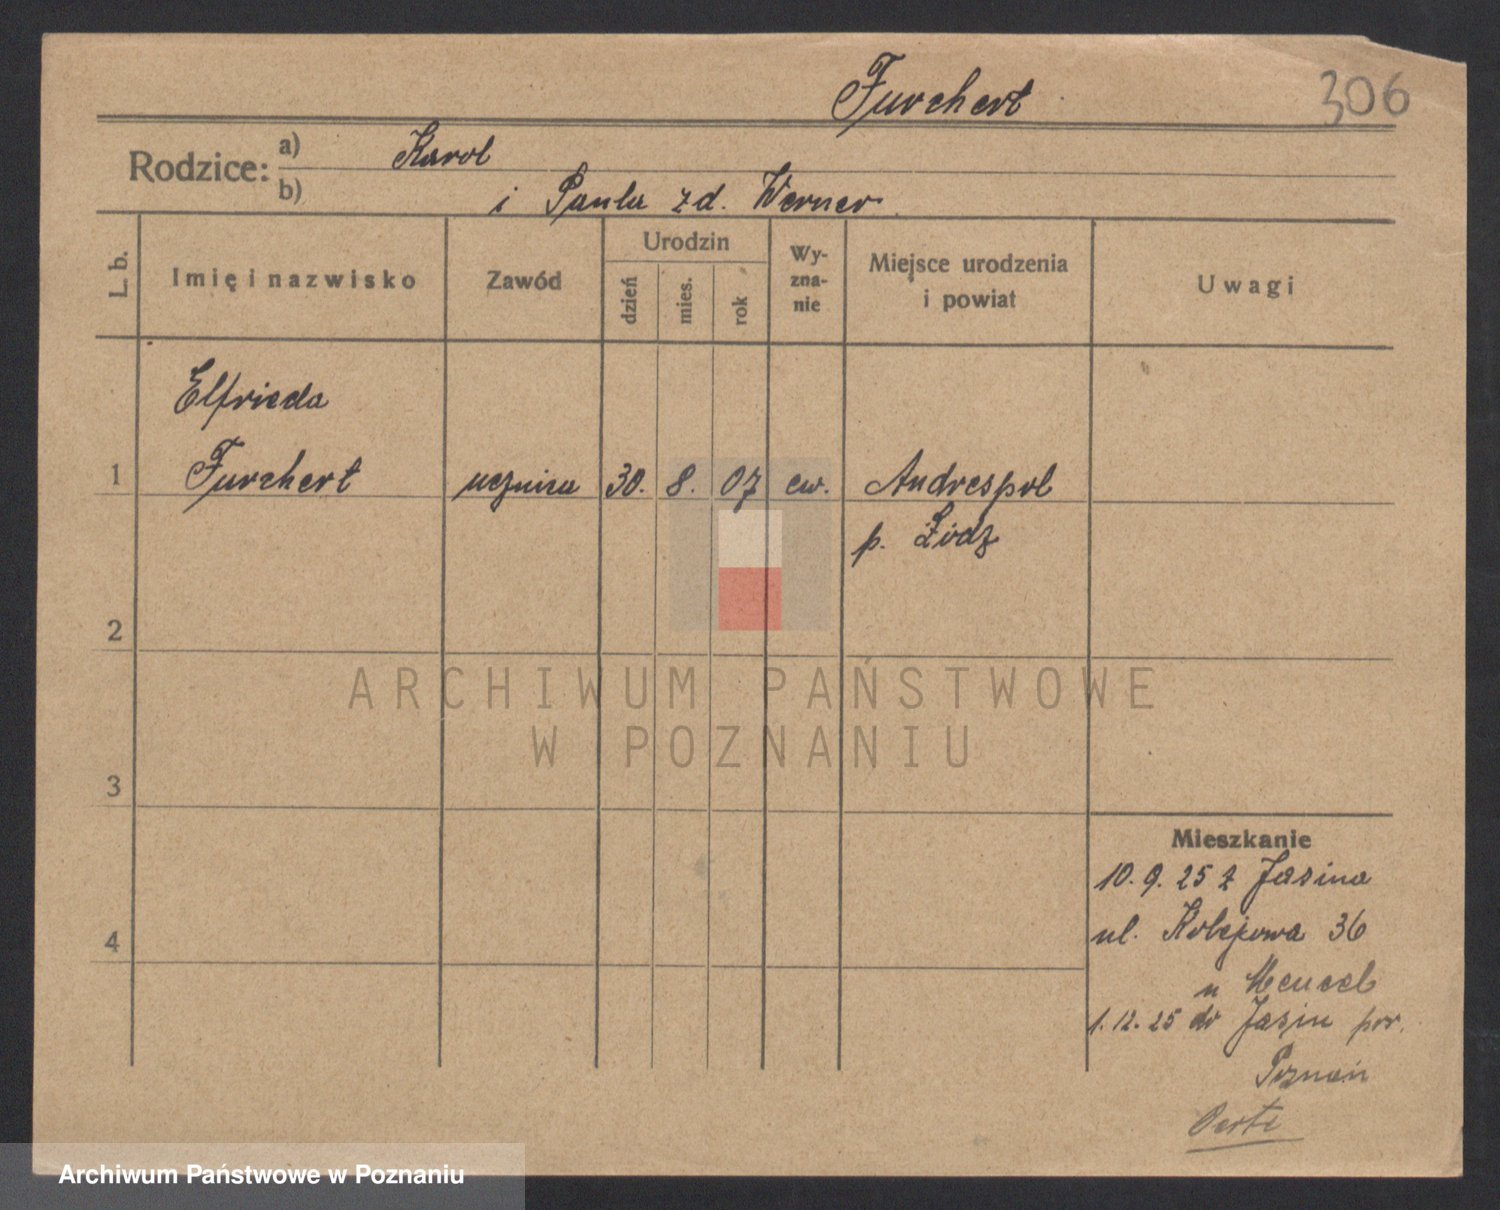 Furchert 306
Rodzice: a) Karol
b) i Paula zd. Werner
L. b.
Imię i nazwisko
Zawód
Urodzin
dzień
mies.
rok
Wy-
zna-
nie
Miejsce urodzenia
i powiat
Uwagi
Elfrieda
1 Furchert uczenica 30. 8. 07 ew. Andrespol
p. Łódz
2
3
4
Mieszkanie
10. 9. 25 z Jasina
ul. Kolejowa 36
u
1. 12. 25 do Jasin pow.
Poznań
ARCHIWUM PAŃSTWOWE
W POZNANIU
Archiwum Państwowe w Poznaniu